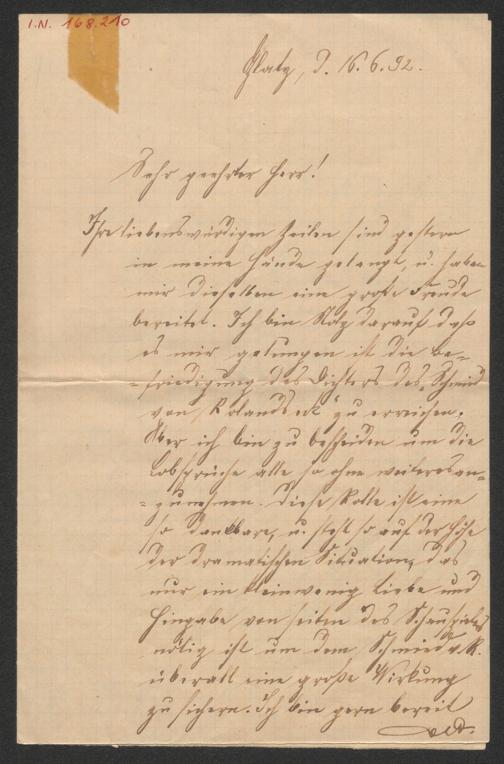 I.N. 168.210
Glatz, d. 16.6.92.
Sehr geehrter Herr!
Ihre liebenswürdigen Zeilen sind gestern
in meine Hände gelangt, u. haben
mir dieselben eine große Freude
bereitet. Ich bin stolz darauf daß
es mir gelungen ist die Be=
=friedigung des Dichters des "Schmied
von Rolandseck" zu erreichen.
Aber ich bin zu bescheiden um die
Lobsprüche alle so ohne weiteres an=
=zunehmen. Diese Rolle ist eine
so dankbare, u. steht so auf der Höhe
der dramatischen Situation, das
nur ein kleinwenig Liebe und
Hingabe von seiten des Schauspielers
nötig ist um dem Schmied v. R.
überall eine große Wirkung
zu sichern. Ich bin gern bereit